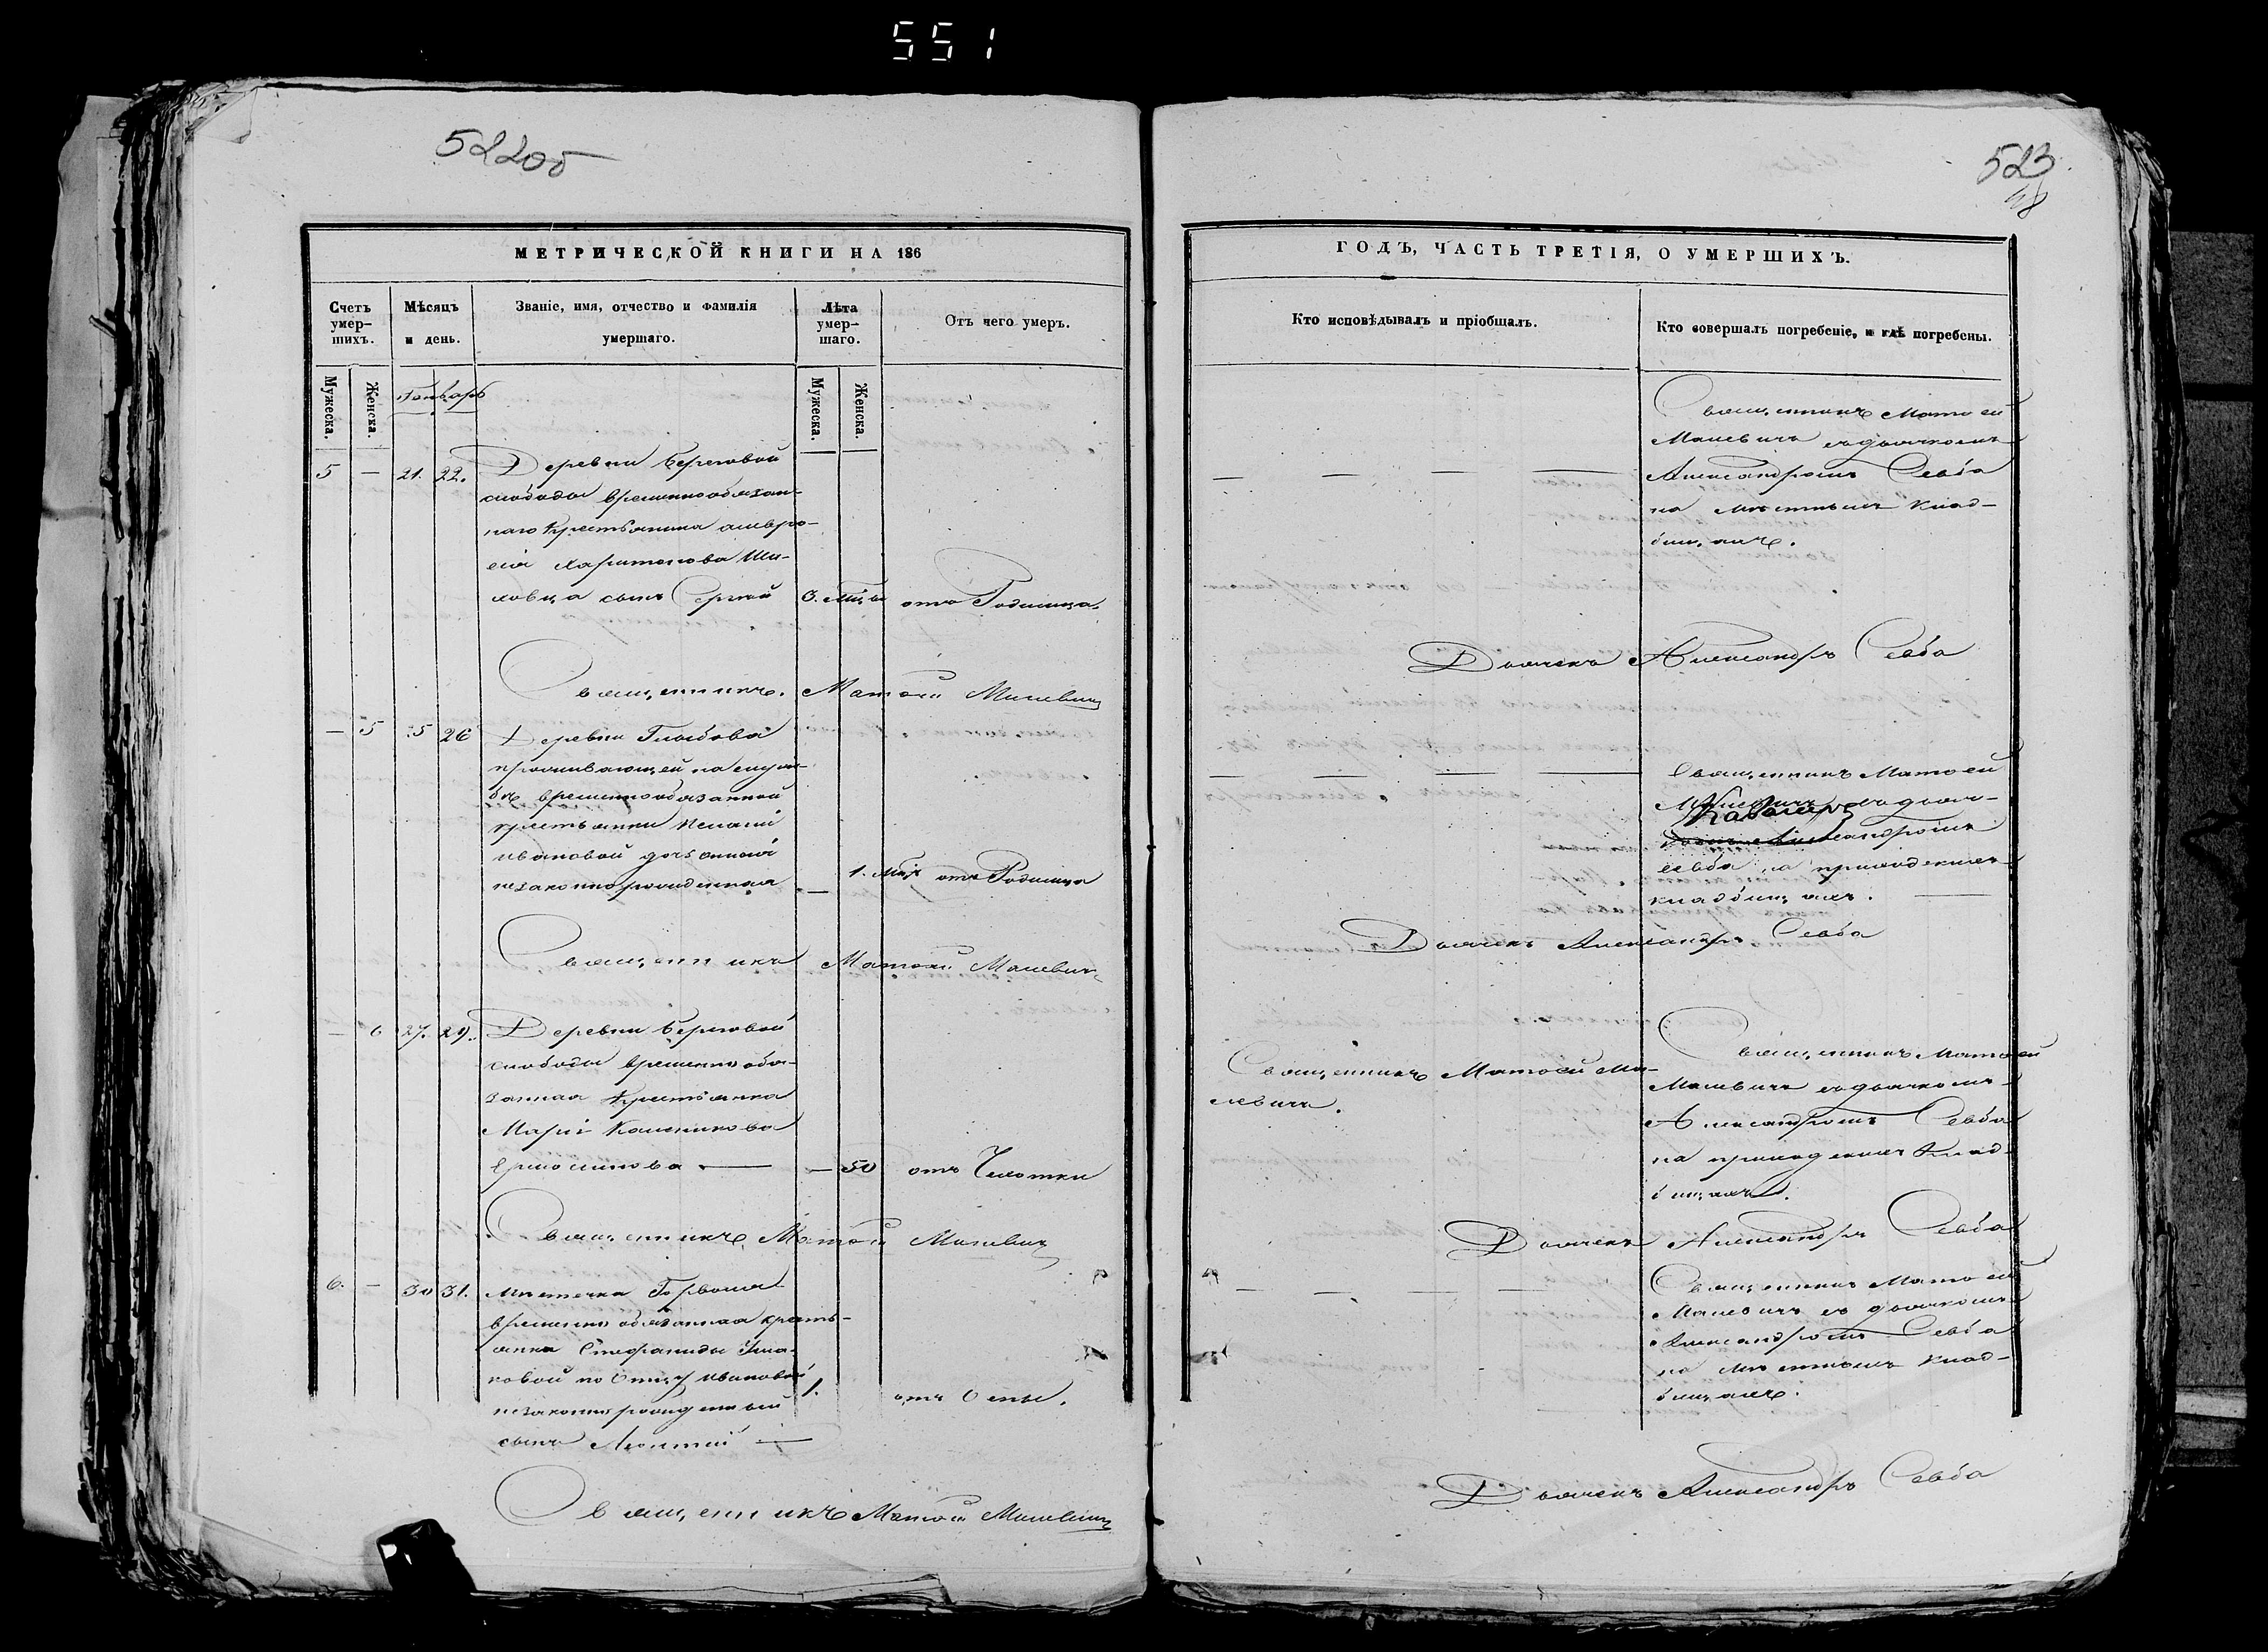 551
522об
МЕТРИЧЕСКОЙ КНИГИ НА 186
Счетъ умер-шихъ.
Мѣсяцъ и день.
Званіе, имя, отчество и фамилія умершаго.
Лѣта умер-шаго.
Отъ чего умеръ.
Мужеска.
Женска.
Генварь
Мужеска.
Женска.
5 — 21. 22. Деревни Береговой
слободы временнообязан-
наго Крестьянина амвро-
сія Харитонова Ши-
ховца сынъ Сергій 3. мцы отъ Родимца.
Священникъ. Матѳей Малевичъ
— 5 25 26 Деревни Глыбова
проживающей на служ-
бѣ временнообязанной
крестьянки
ивановой дочь
незаконнорожденная — 1. мцъ отъ Родимца
Священникъ Матѳей Малевичъ
— 6 27. 29. Деревни Береговой
слободы временно обя-
занная Крестьянка
Марія Калениково
Ермолинова — — 50 отъ Чехотки
Священникъ Матѳей Малевичъ
6. — 30 31. Мѣстечка Горвола
временно обязанная кресть-
янки Стефаниды
ковой по Отцу ивановой
незаконнорожденный 1. отъ Оспы.
сынъ Леонтій —
Священникъ Матѳей Малевичъ
523
48
ГОДЪ, ЧАСТЬ ТРЕТІЯ, О УМЕРШИХЪ.
Кто исповѣдывалъ и пріобщалъ.
Кто совершалъ погребеніе, и гдѣ погребены.
Священникъ Матѳей
Малевичъ съ дьячкомъ
— — — — Александромъ Севба
на мѣстномъ Клад-
бищахъ.
Дьячекъ Александръ Севба
— — — — Священникъ Матѳей
Малевичъ съ дьяч-
Александромъ
севба на приходскихъ
кладбищахъ. —
Дьячекъ Александръ Севба
Священникъ Матѳей
Священникъ Матѳей Ма-
левичъ.
Малевичъ съ дьячкомъ
Александромъ Севба
на приходскихъ Клад-
бищахъ.
Дьячекъ Александръ Севба
— — — — Священникъ Матѳей
Малевичъ съ дьячкомъ
Александромъ Севба
на мѣстномъ клад-
бищахъ.
Дьячекъ Александръ Севба